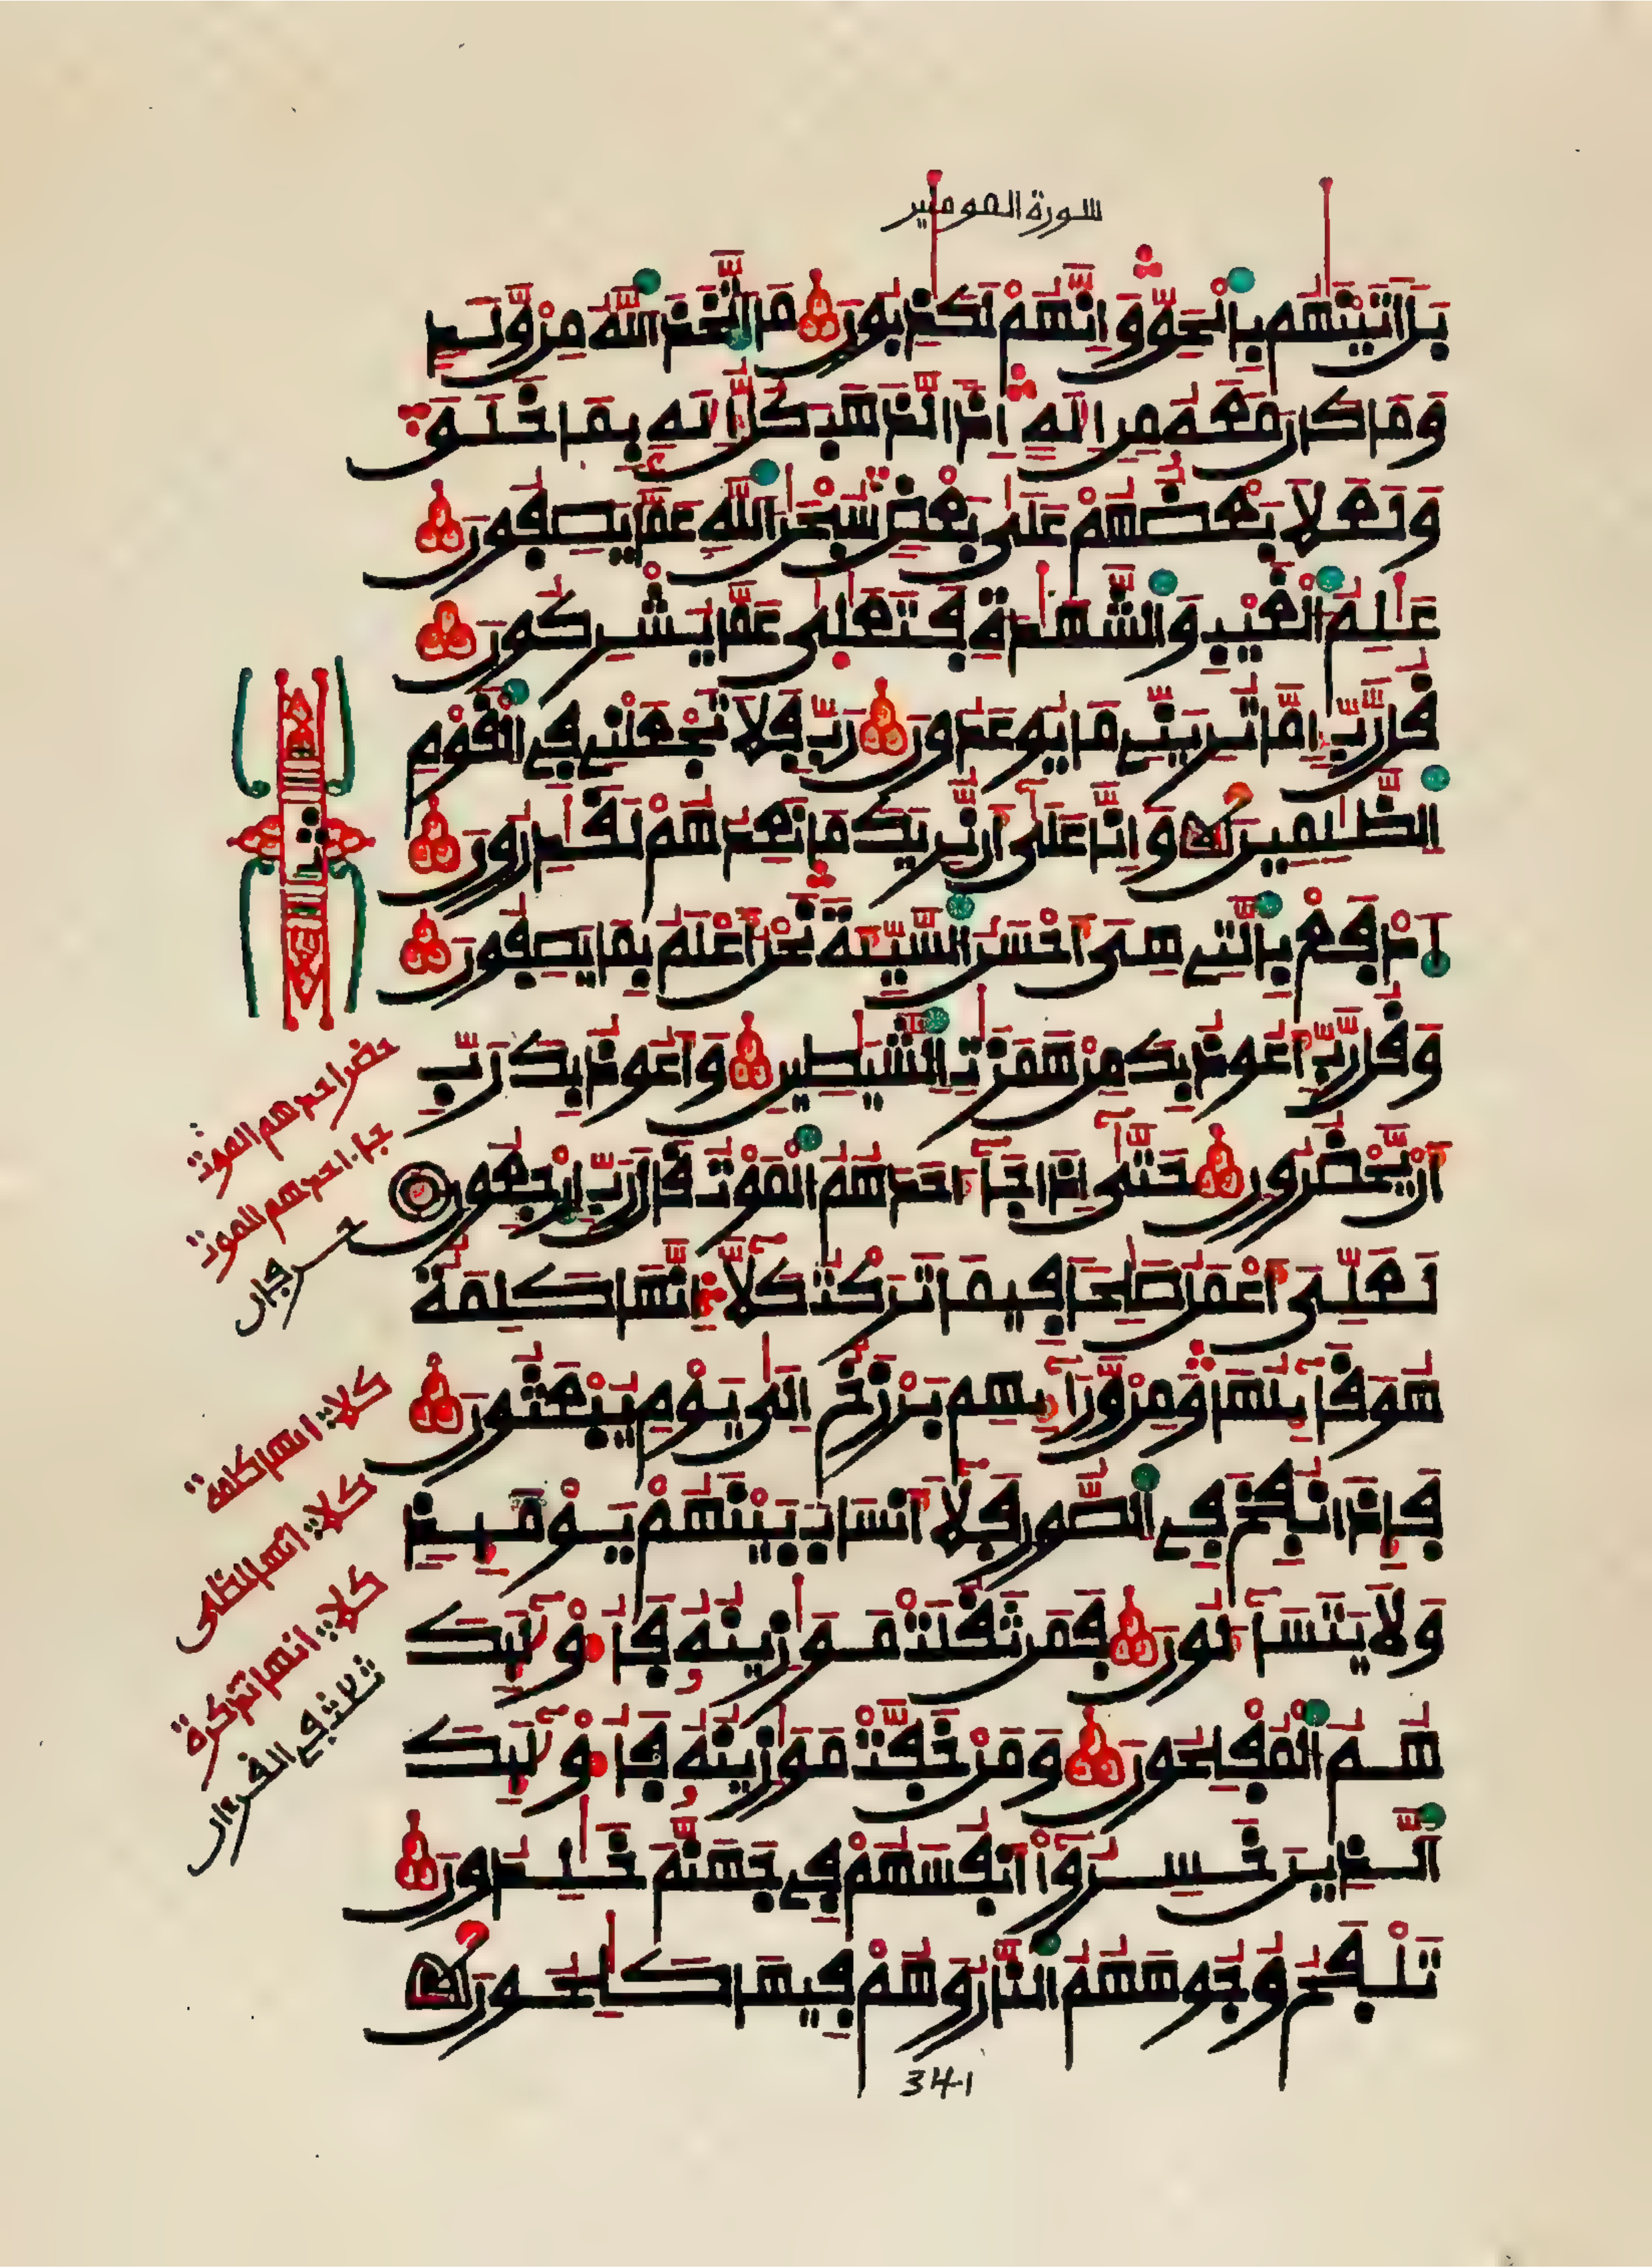 سورة المومنين
بَلَ اتَيْنَٰهُم بِالْحَقِّ وَإِنَّهُمْ لَكَٰذِبُونَ مَا اَتَّخَذَ اَللَّهُ مِنْ وَّلَدٍ
وَمَا كَانَ مَعَهُ مِنِ الَٰهٍ اِذاً لَّذَهَبَ كُلُّ إِلَٰهٍ بِمَا خَلَقَ
وَلَعَلَا بَعْضُهُمْ عَلَىٰ بَعْضٍ سُبْحَٰنَ اَللَّهِ عَمَّا يَصِفُونَ
عَٰلِمُ اُلْغَيْبِ وَالشَّهَٰدَةِ فَتَعَٰلَىٰ عَمَّا يُشْرِكُونَ
قُل رَّبِّ إِمَّا تُرِيَنِّي مَا يُوعَدُونَ رَبِّ فَلَا تَجْعَلْنِي فِي اِلْقَوْمِ
اِلظَّٰلِمِينَ وَإِنَّا عَلَىٰ أَن نُّرِيَكَ مَا نَعِدُهُمْ لَقَٰدِرُونَ
اَدْفَعْ بِالَّتِي هِيَ أَحْسَنُ اُلسَّيِّئَةَ نَحْنُ أَعْلَمُ بِمَا يَصِفُونَ
وَقُل رَّبِّ أَعُوذُ بِكَ مِنْ هَمَزَٰتِ اِلشَّيَٰطِينِ وَأَعُوذُ بِكَ رَبِّ
أَنْ يَّحْضُرُونِ حَتَّىٰ إِذَا جَآءَ احَدَهُمُ اُلْمَوْتُ قَالَ رَبِّ اِرْجِعُونِ
لَعَلِّيَ أَعْمَلُ صَٰلِحاً فِيمَا تَرَكْتُ كَلَّآ إِنَّهَا كَلِمَةٌ
هُوَ قَآئِلُهَا وَمِنْ وَّرَآئِهِم بَرْزَخٌ اِلَىٰ يَوْمِ يُبْعَثُونَ
فَإِذَا نُفِخَ فِي اِلصُّورِ فَلَآ أَنسَابَ بَيْنَهُمْ يَوْمَئِذٍ
وَلَا يَتَسَآءَلُونَ فَمَن ثَقُلَتْ مَوَٰزِينُهُ فَأُوْلَٰٓئِكَ
هُمُ اُلْمُفْلِحُونَ وَمَنْ خَفَّتْ مَوَٰزِينُهُ فَأُوْلَٰٓئِكَ
اَلَّذِينَ خَسِرُوٓاْ أَنفُسَهُمْ فِي جَهَنَّمَ خَٰلِدُونَ
تَلْفَحُ وُجُوهَهُمُ اُلنَّارُ وَهُمْ فِيهَا كَٰلِحُونَ
341
ثمن
حضر احدهم الموت
جاء احدهم الموت
حرفان
كلا انها كلمة
كلا انها لظى
كلا انها تذكرة
ثلاث في القرءان